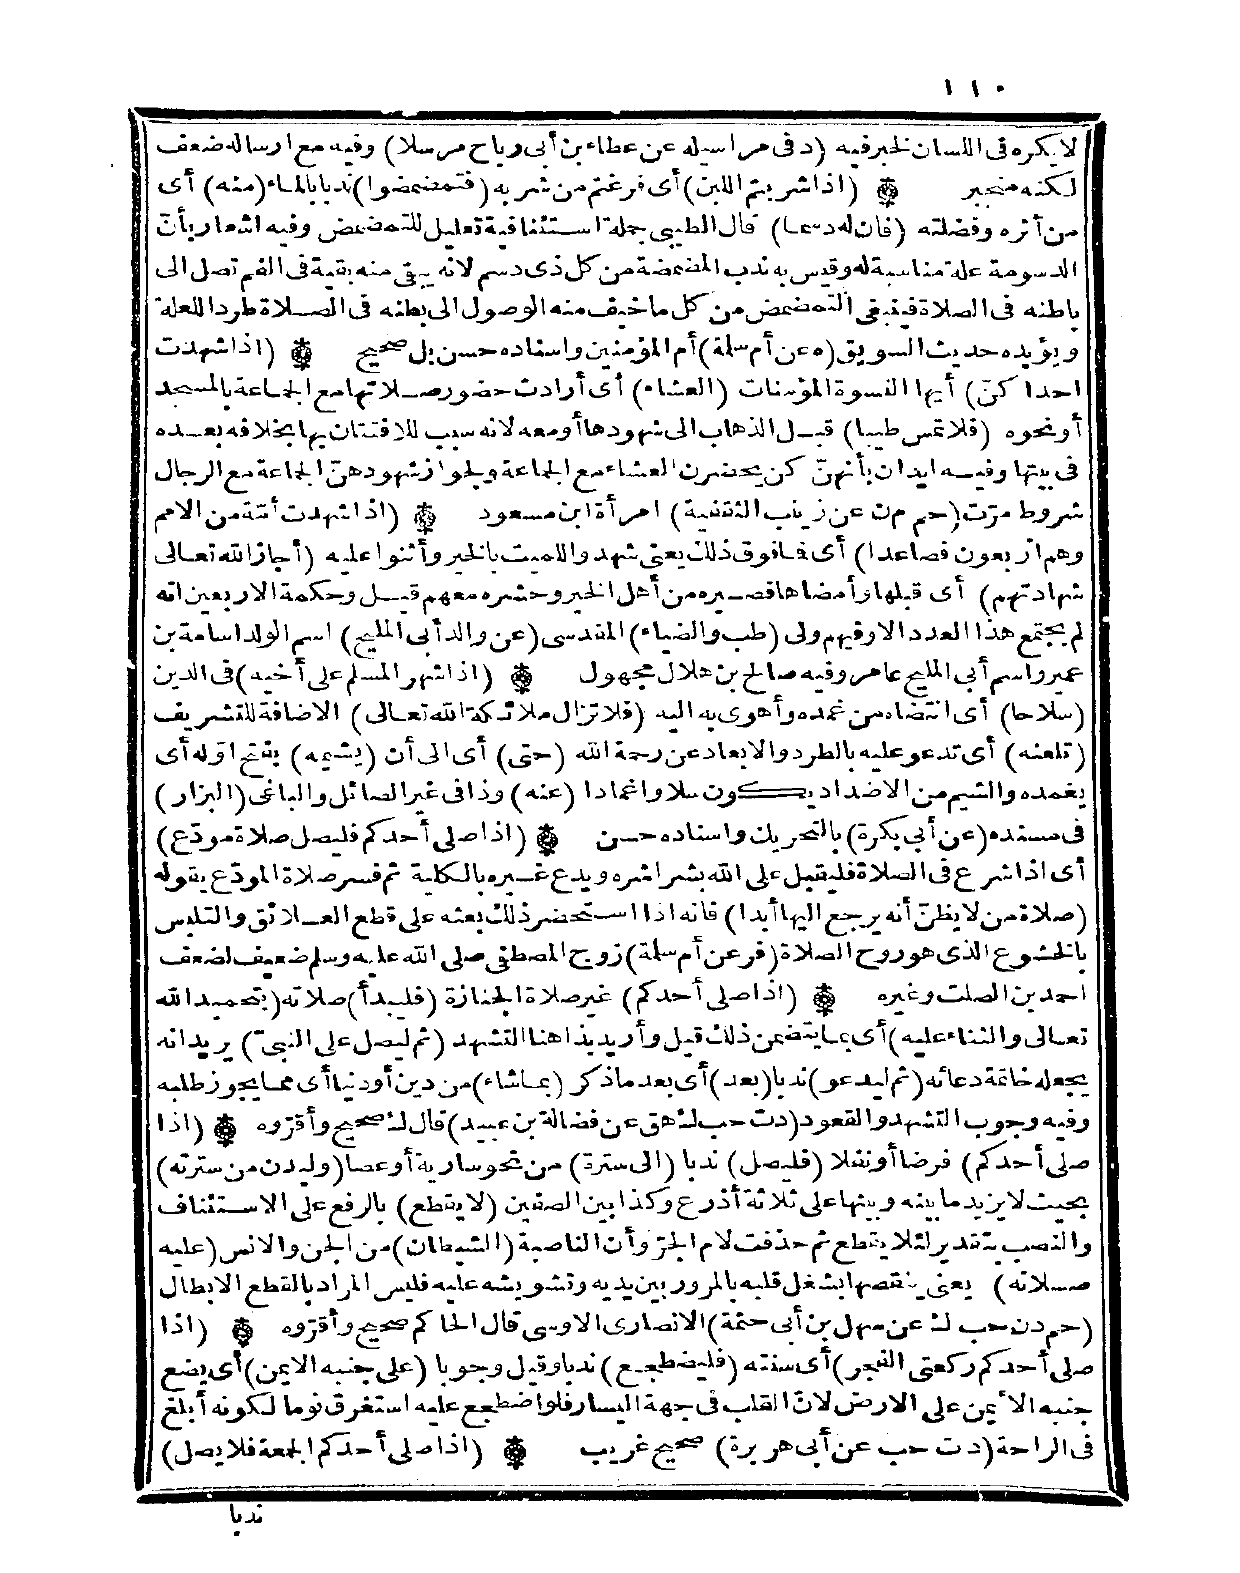 ١١٠
لا يكره في اللسان لخبر فيه (د في مراسيله عن عطاء بن أبى رباح مرسلا) وفيه مع ارساله ضعف
لكنه منجبر ۞ (اذا شربتم اللبن) أى فرغتم من شربه (فتمضمضوا) ندبا بالماء (منه) أى
من أثره وفضلته (فان له دسما) قال الطيبى جملة استئنافية تعليل للتمضمض وفيه اشعار بأن
الدسومة علة مناسبة له وقيس به ندب المضمضة من كل ذى دسم لانه يبقى منه بقية فى الفم تصل الى
باطنه فى الصلاة فينبغى التمضمض من كل ما خيف منه الوصول الى بطنه فى الصلاة طردا للعلة
ويؤيده حديث السويق (ه عن أم سلمة) أم المؤمنين واسناده حسن بل صحيح ۞ (اذا شهدت
احداكنّ) أيها النسوة المؤمنات (العشاء) أى أرادت حضور صلاتها مع الجماعة بالمسجد
أو نحوه (فلا تمس طيبا) قبل الذهاب الى شهودها أو معه لانه سبب للافتتان بها بخلافه بعده
فى بيتها وفيه ايدان بأنهنّ كن يحضرن العشاء مع الجماعة ولجواز شهودهنّ الجماعة مع الرجال
شروط مرّت (حم م ن عن زينب الثقفية) امرأة ابن مسعود ۞ (اذا شهدت أمّة من الامم
وهم أربعون فصاعدا) أى فما فوق ذلك يعنى شهدوا للميت بالخير وأثنوا عليه (أجاز الله تعالى
شهادتهم) أى قبلها وأمضاها فصيره من أهل الخير وحشره معهم قيل وحكمة الاربعين انه
لم يجتمع هذا العدد الا وفيهم ولى (طب والضياء) المقدسى (عن والد أبى المليح) اسم الولد اسامة بن
عمير واسم أبى المليح عامر وفيه صالح بن هلال مجهول ۞ (اذا شهر المسلم على أخيه) فى الدين
(سلاحا) أى انتضاه من غمده وأهوى به اليه (فلا تزال ملائكة الله تعالى) الاضافة للتشريف
(تلعنه) أى تدعو عليه بالطرد والابعاد عن رحمة الله (حتى) أى الى أن (يشيمه) بفتح اوّله أى
يغمده والشيم من الاضداد يكون سلا واغمادا (عنه) وذا فى غير الصائل والباغى (البزار)
فى مسنده (عن أبى بكرة) بالتحريك واسناده حسن ۞ (اذا صلى أحدكم فليصل صلاة مودّع)
أى اذا شرع فى الصلاة فليقبل على الله بشراشره ويدع غيره بالكلية ثم فسر صلاة المودّع بقوله
(صلاة من لا يظنّ أنه يرجع اليها أبدا) فانه اذا استحضر ذلك بعثه على قطع العلائق والتلبس
بالخشوع الذى هو روح الصلاة (فر عن أم سلمة) زوج المصطفى صلى الله عليه وسلم ضعيف لضعف
احمد بن الصلت وغيره ۞ (اذا صلى أحدكم) غير صلاة الجنازة (فليبدأ) صلاته (بتحميد الله
تعالى والثناء عليه) أى بما يتضمن ذلك قيل وأريد بذا هنا التشهد (ثم ليصل على النبىّ) يريد انه
يجعله خاتمة دعائه (ثم ليدعو) ندبا (بعد) أى بعد ما ذكر (بما شاء) من دين أو دنيا أى مما يجوز طلبه
وفيه وجوب التشهد والقعود (د ت حب ك هق عن فضالة بن عبيد) قال ك صحيح وأقرّوه ۞ (اذا
صلى أحدكم) فرضا أو نفلا (فليصل) ندبا (الى سترة) من نحو سارية أو عصا (وليدن من سترته)
بحيث لا يزيد ما بينه وبينها على ثلاثة أذرع وكذا بين الصفين (لا يقطع) بالرفع على الاستئناف
والنصب بتقدير لئلا يقطع ثم حذفت لام الجرّ وأن الناصبة (الشيطان) من الجن والانس (عليه
صلاته) يعنى ينقصها بشغل قلبه بالمرور بين يديه وتشويشه عليه فليس المراد بالقطع الابطال
(حم د ن حب ك عن سهل بن أبى حثمة) الانصارى الاوسى قال الحاكم صحيح وأقرّوه ۞ (اذا
صلى أحدكم ركعتى الفجر) أى سنته (فليضطجع) ندبا وقيل وجوبا (على جنبه الايمن) أى يضع
جنبه الأيمن على الارض لانّ القلب فى جهة اليسار فلو اضطجع عليه استغرق نوما لكونه أبلغ
فى الراحة (د ت حب عن أبى هريرة) صحيح غريب ۞ (اذا صلى أحدكم الجمعة فلا يصل)
ندبا